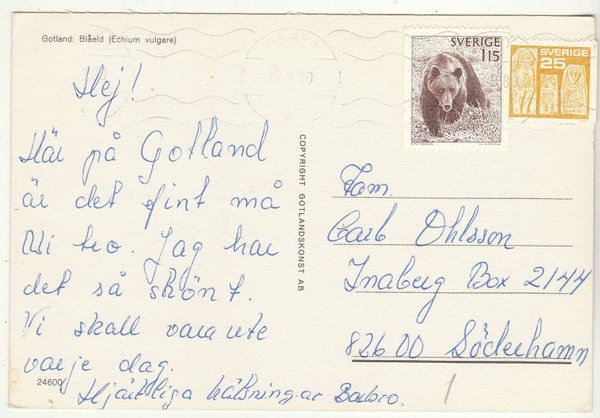 Gotland: Blåeld (Echium vulgare)
SVERIGE
115
SVERIGE
25
Hej!
Här på Gotland
är det fint må
Ni tro. Jag har
det så skönt.
Vi skall vara ute
varje dag.
Hjärtliga hälsningar Barbro.
24600
COPYRIGHT GOTLANDSKONST AB
Fam.
Carl Ohlsson
Inaberg Box 2144
826 00 Söderhamn
1